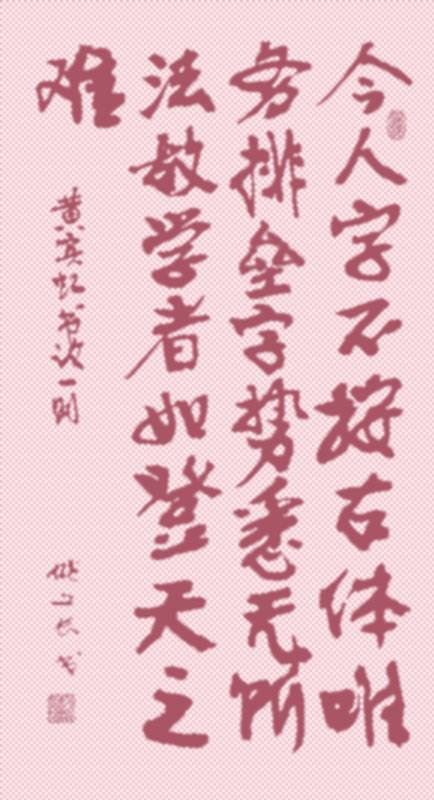 今人字不按古体唯
务排垒字势悉无所
法故学者如登天之
难
黄宾虹书论一则